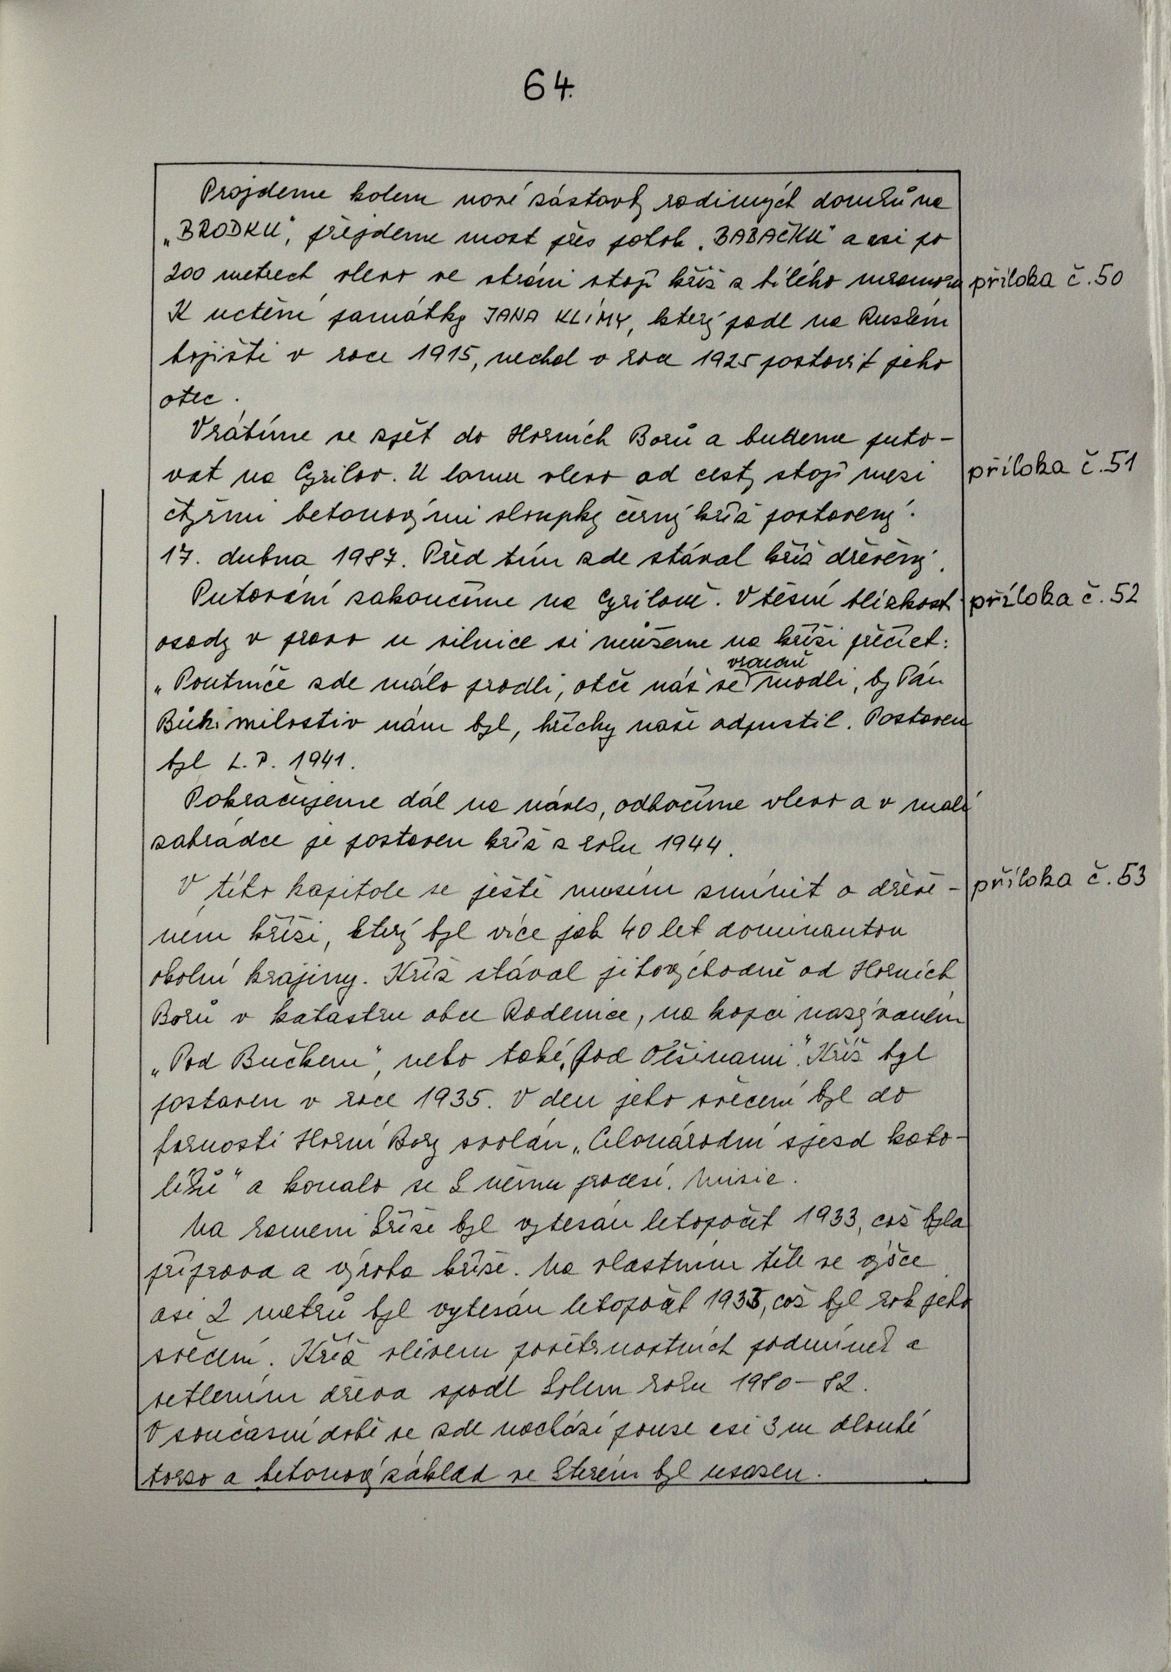 64.
Projdeme kolem nové zástavby rodinných domků na
„BRODKU", přejdeme most přes potok „BABAČKU" a asi po
200 metrech vlevo ve stráni stojí kříž z bílého mramoru příloha č. 50
K uctění památky JANA KLÍMY, který padl na Ruském
bojišti v roce 1915, nechal v roce 1925 postavit jeho
otec.
Vrátíme se zpět do Horních Borů a budeme puto-
vat na Cyrilov. U lomu vlevo od cesty stojí mezi příloha č. 51
čtyřmi betonovými sloupky černý kříž postavený
17. dubna 1987. Před tím zde stával kříž dřevěný.
Putování zakončíme na Cyrilově. V těsné blízkosti příloha č. 52
osady v pravo u silnice si můžeme na kříži přečíst:
vroucně
„Poutníče zde málo prodli, otče náš se modli, by Pán
Bůh milostiv nám byl, hříchy naše odpustil. Postaven
byl L. P. 1941.
Pokračujeme dál na náves, odbočíme vlevo a v malé
zahrádce je postaven kříž z roku 1944.
V této kapitole se ještě musím zmínit o dřevě- příloha č. 53
ném kříži, který byl více jak 40 let dominantou
okolní krajiny. Kříž stával jihovýchodně od Horních
Borů v katastru obce Radenice, na kopci nazývaném
„Pod Bučkem", nebo také „Pod Olšinami". Kříž byl
postaven v roce 1935. V den jeho svěcení byl do
farnosti Horní Bory svolán „Celonárodní sjezd kato-
líků" a konalo se k němu procesí. Misie.
Na rameni kříže byl vytesán letopočet 1933, což byla
příprava a výroba kříže. Na vlastním těle ve výšce
asi 2 metrů byl vytesán letopočet 1935, což byl rok jeho
svěcení. Kříž vlivem povětrnostních podmínek a
zetlením dřeva spadl kolem roku 1980-82.
V současné době se zde nachází pouze asi 3 m dlouhé
torzo a betonový základ ve kterém byl usazen.